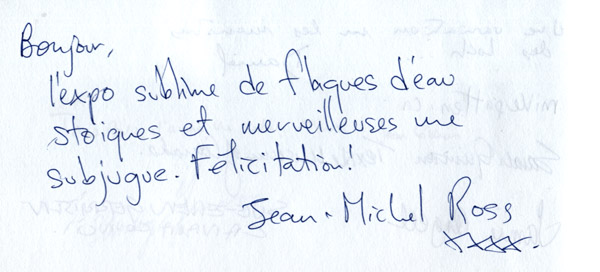 Bonjour,
l'expo sublime de flaques d'eau
stoïques et merveilleuses me
subjugue. Félicitation!
Jean-Michel Ross
xxxx.